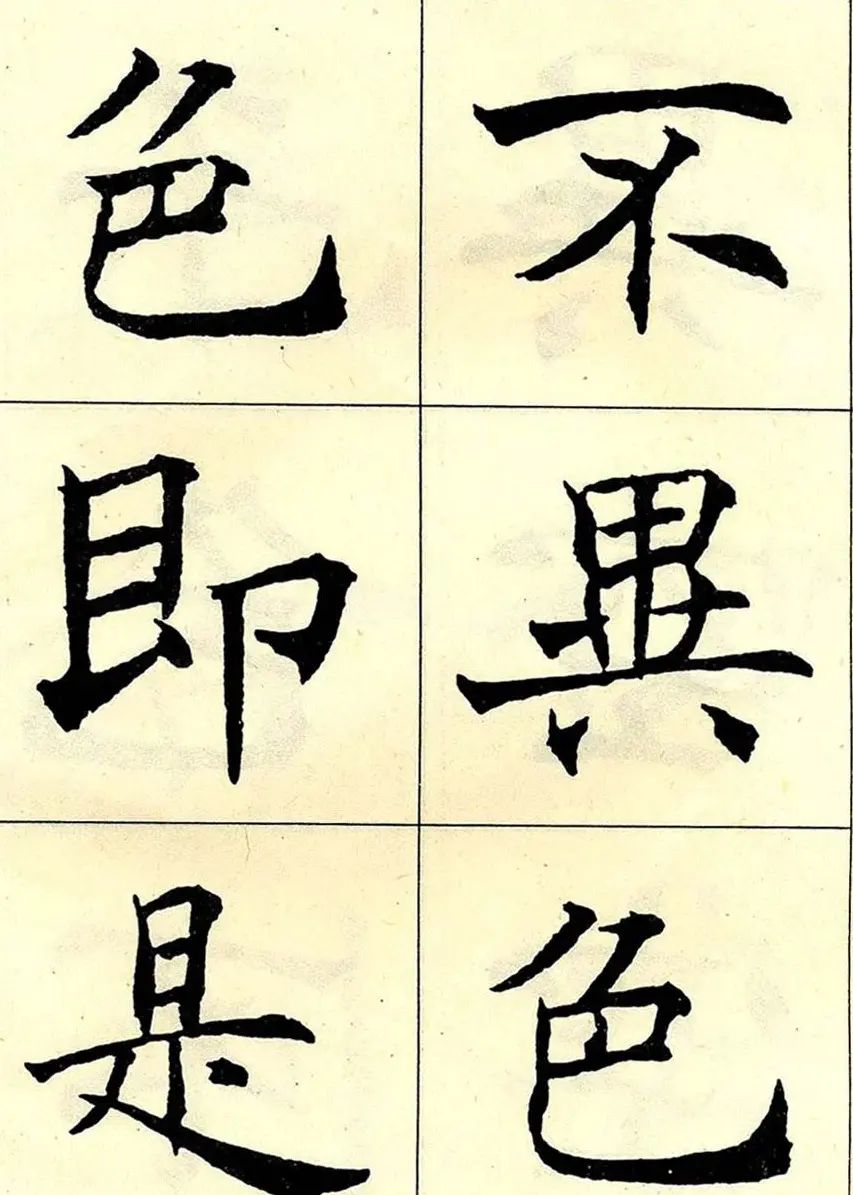 不異色
色即是